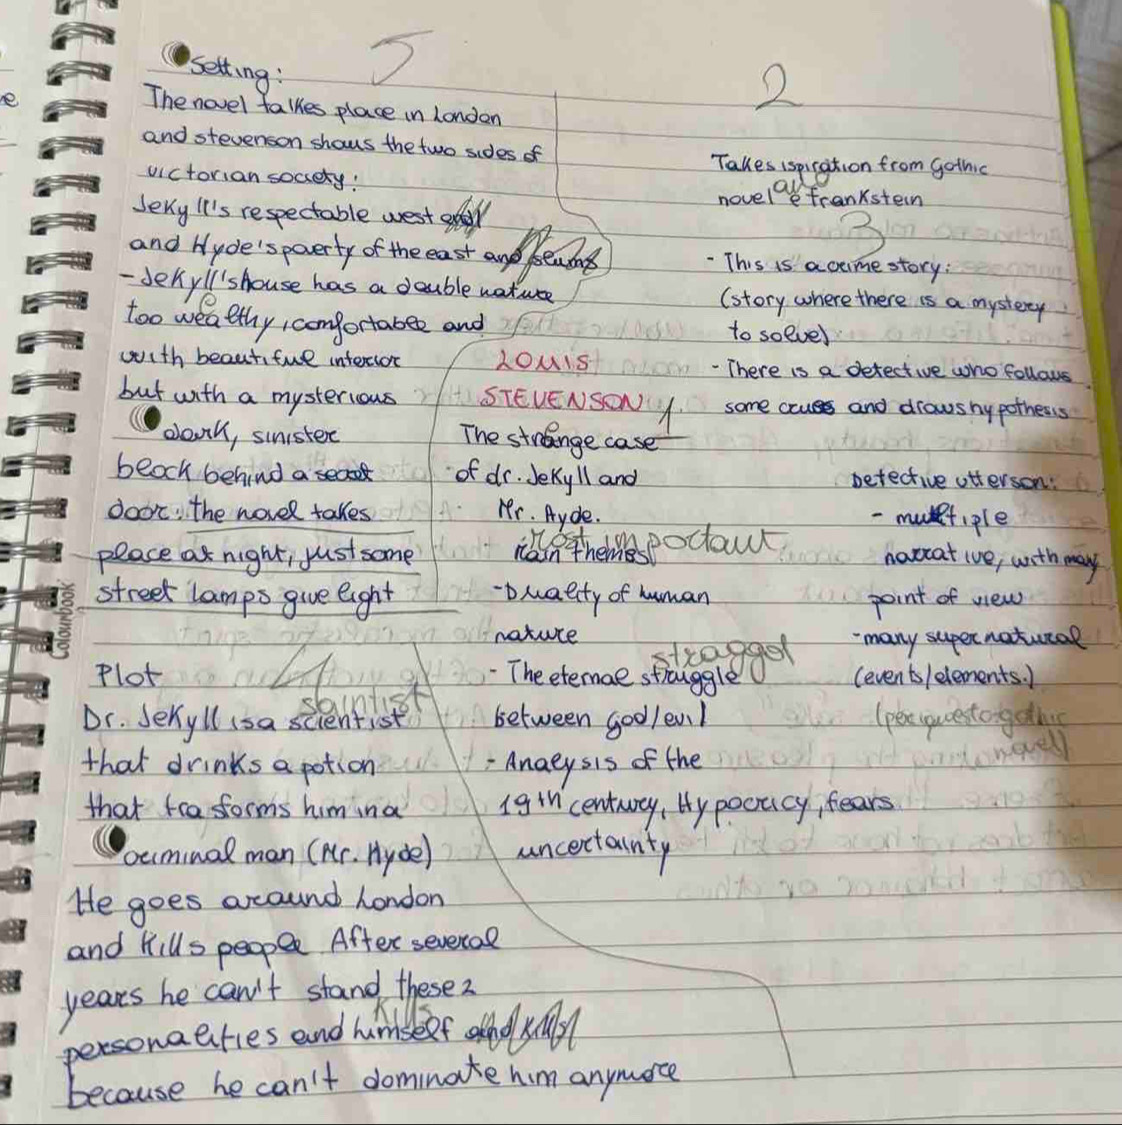 5
Setting:
The novel takes place in London
and stevenson shows the two sides of
victorian society:
Jekyll's respectable west end
and Hyde's poverty of the east end slums
- Jekyll's house has a double nature
too wealthy, comfortable and
with beautiful interior
but with a mysterious
dark, sinister
block behind a secret
door: the novel takes
place at night, just some
street lamps give light
4
Plot
saintist
Dr. Jekyll is a scientist
that drinks a potion
that trasforms him in a
criminal man (Mr. Hyde)
He goes around London
and Kills people. After several
years he can't stand these 2
Kills
personalities and himself and Kills
because he can't dominate him anymore
LOUIS
STEVENSON 1
The strange case
of dr. Jekyll and
Mr. Hyde.
most important
main themes
- Duality of human
nature
straggol
- The eternal struggle
between god/evil
- Analysis of the
19th century, Hypocricy, fears
uncertainty
2
Takes ispiration from Gothic
novel e frankstein
3
- This is a crime story:
(story where there is a mystery
to solve)
- There is a detective who follows
some clues and draws hypothesis
Detective utterson:
- multiple
narrative, with many
point of view
- many supernatural
(events/elements.)
(per questo gothic
novel)
Colourbook